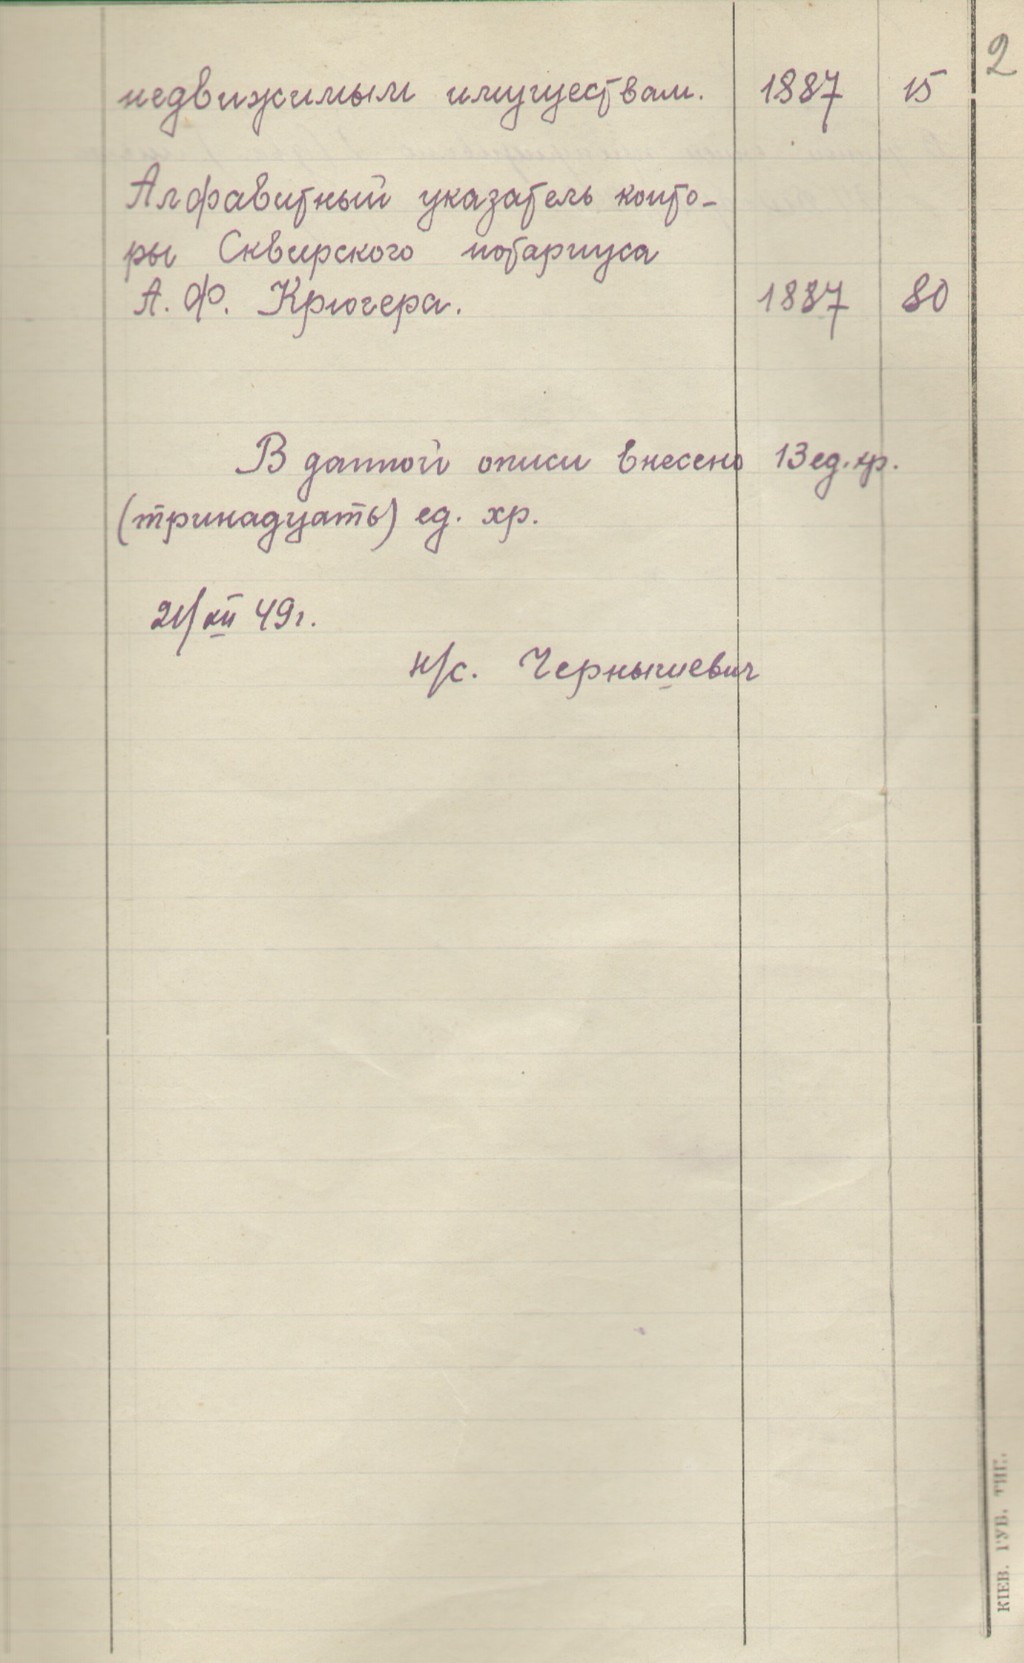 2
недвижимым имуществам. 1887 15
Алфавитный указатель конто-
ры Сквирского нотариуса
А. Ф. Крюгера. 1887 80
В данной описи внесено 13 ед. хр.
(тринадцать) ед. хр.
21/XII 49 г.
Н/с. Чернышевич
КІЕВ. ГУБ. ТИП.